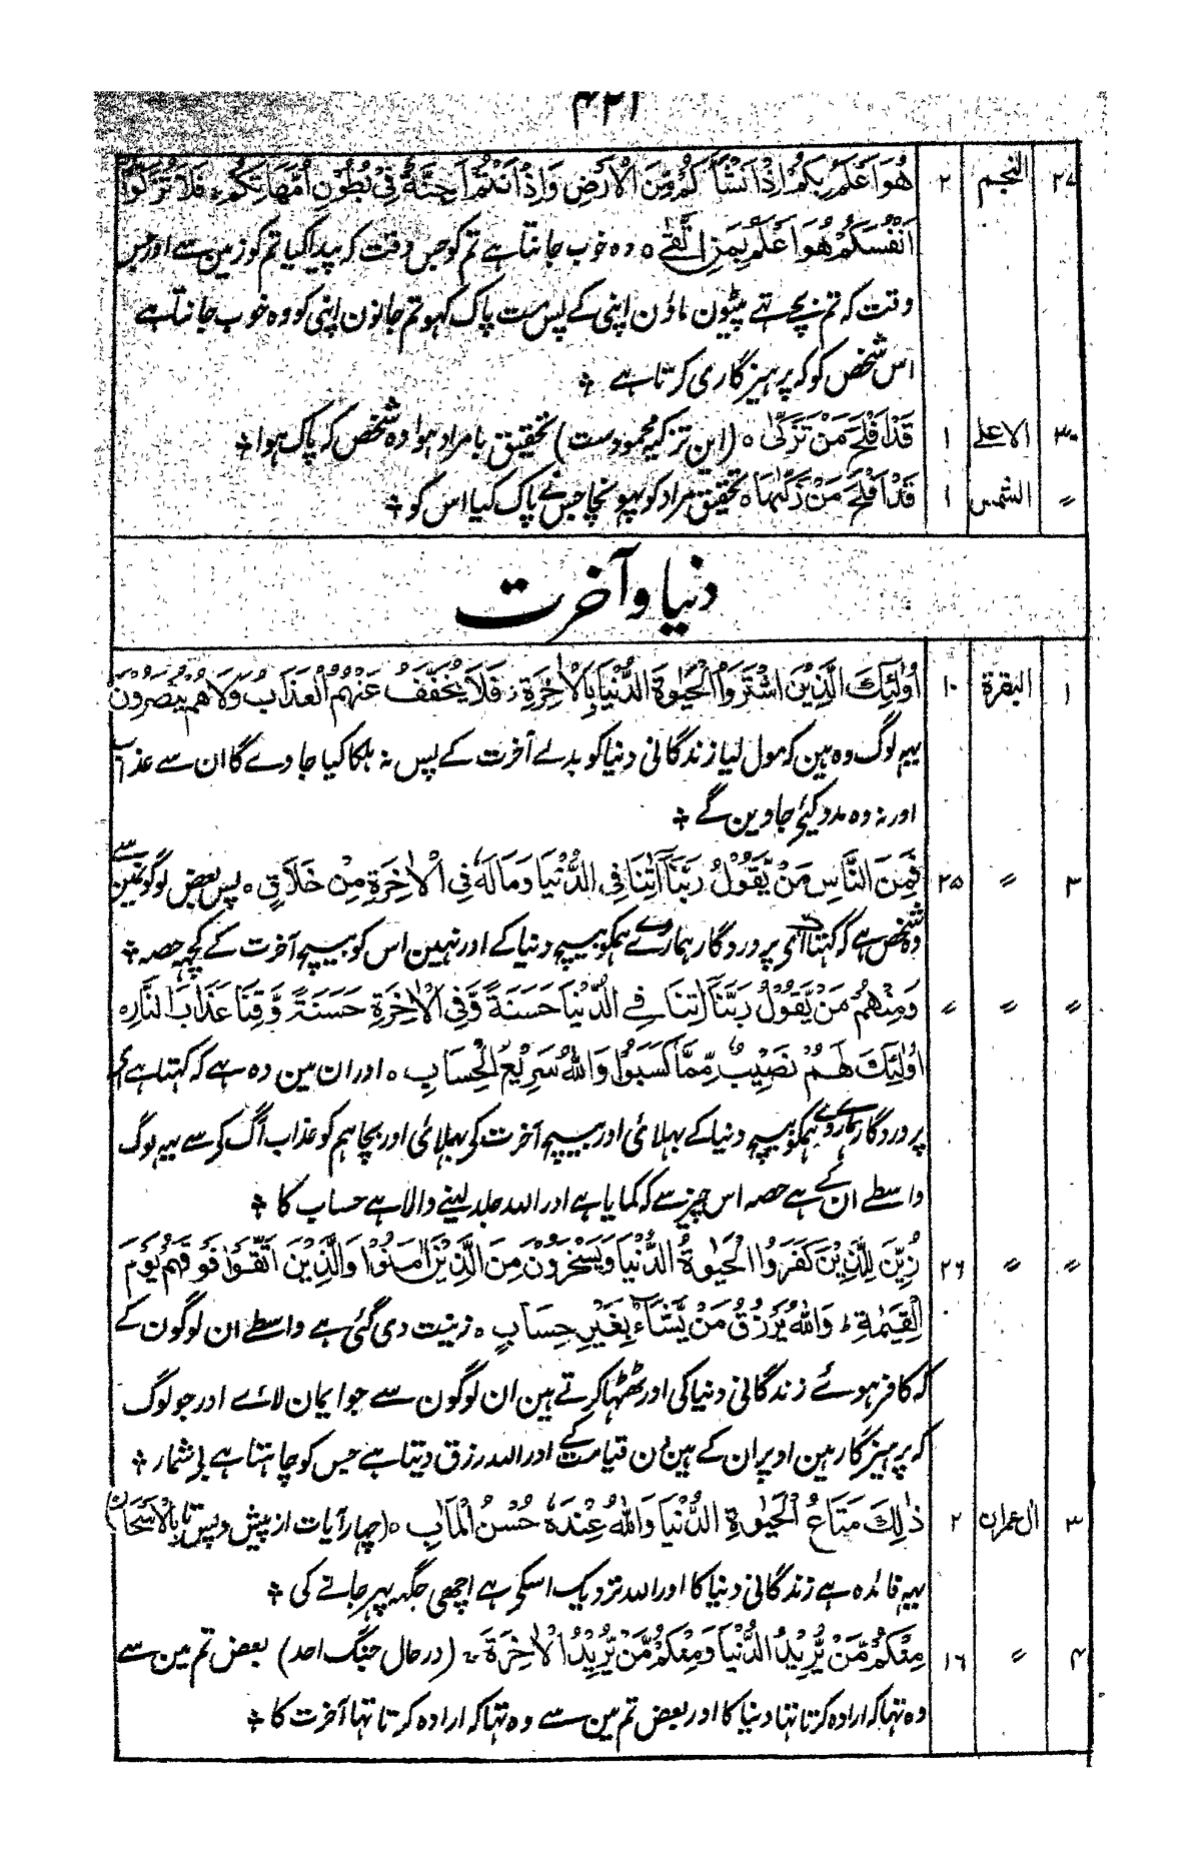 ۴۲۱
۲۷ النجم ۲ هُوَ اَعْلَمُ بِكُمْ اِذْ اَنْشَاَ كُمْ مِّنَ الْاَرْضِ وَاِذْ اَنْتُمْ اَجِنَّةٌ فِيْ بُطُوْنِ اُمَّهَاتِكُمْ فَلَا تُزَكُّوْٓا
اَنْفُسَكُمْ هُوَ اَعْلَمُ بِمَنِ اتَّقٰے ہ وہ خوب جانتا ہے تم کو جس وقت کہ پیدا کیا تم کو زمین سے اور جس
وقت کہ تم بچے تہے پیٹون ماؤن اپنی کے پس مت پاک کہو تم جانون اپنی کو وہ خوب جانتا ہے
اس شخص کو کہ پرہیزگاری کرتا ہے ؞
۳۰ الاعلے ۱ قَدْ اَفْلَحَ مَنْ تَزَكّٰى ہ (این تزکیہ محمود ست) تحقیق بامراد ہوا وہ شخص کہ پاک ہوا ؞
〃 الشمس ۱ قَدْ اَفْلَحَ مَنْ زَكّٰىهَا ہ تحقیق مراد کو پہونچا جسنے پاک کیا اس کو ؞
دنیا و آخرت
۱ البقرة ۱۰ اُولٰٓئِكَ الَّذِيْنَ اشْتَرَوُا الْحَيٰوةَ الدُّنْيَا بِالْاٰخِرَةِ ز فَلَا يُخَفَّفُ عَنْهُمُ الْعَذَابُ وَلَا هُمْ يُنْصَرُوْنَ
یہہ لوگ وہ ہین کہ مول لیا زندگانی دنیا کو بدلے آخرت کے پس نہ ہلکا کیا جاوے گا ان سے عذاب
اور نہ وہ مدد کیئے جاوین گے ؞
۲ 〃 ۲۵ فَمِنَ النَّاسِ مَنْ يَّقُوْلُ رَبَّنَآ اٰتِنَا فِي الدُّنْيَا وَمَا لَهٗ فِي الْاٰخِرَةِ مِنْ خَلَاقٍ ہ پس بعض لوگونمین سے
وہ شخص ہے کہ کہتا ای پروردگار ہمارے دے ہمکو بیچ دنیا کے اور نہین اس کو بیچ آخرت کے کچہہ حصہ ؞
〃 〃 〃 وَمِنْهُمْ مَنْ يَّقُوْلُ رَبَّنَآ اٰتِنَا فِے الدُّنْيَا حَسَنَةً وَّفِي الْاٰخِرَةِ حَسَنَةً وَّقِنَا عَذَابَ النَّارِ ہ
اُولٰٓئِكَ لَهُمْ نَصِيْبٌ مِّمَّا كَسَبُوْا وَاللّٰهُ سَرِيْعُ الْحِسَابِ ہ اور ان مین وہ ہے کہ کہتا ہے اے
پروردگار ہمارے دے ہمکو بیچ دنیا کے بہلائی اور بیچ آخرت کی بہلائی اور بچا ہم کو عذاب آگ کے سے یہہ لوگ
واسطے ان کے ہے حصہ اس چیز سے کہ کمایا ہے اور اللہ جلد لینے والا ہے حساب کا ؞
〃 〃 ۲۶ زُيِّنَ لِلَّذِيْنَ كَفَرُوا الْحَيٰوةُ الدُّنْيَا وَيَسْخَرُوْنَ مِنَ الَّذِيْنَ اٰمَنُوْا وَالَّذِيْنَ اتَّقَوْا فَوْقَهُمْ يَوْمَ
الْقِيٰمَةِ ط وَاللّٰهُ يَرْزُقُ مَنْ يَّشَآءُ بِغَيْرِ حِسَابٍ ہ زینت دی گئی ہے واسطے ان لوگون کے
کہ کافر ہوئے زندگانی دنیا کی اور ٹھٹھا کرتے ہین ان لوگون سے جو ایمان لائے اور جو لوگ
کہ پرہیزگار ہین اوپر ان کے ہین دن قیامت کے اور اللہ رزق دیتا ہے جس کو چاہتا ہے بی شمار ؞
۳ اٰل عمران ۲ ذٰلِكَ مَتَاعُ الْحَيٰوةِ الدُّنْيَا وَاللّٰهُ عِنْدَهٗ حُسْنُ الْمَاٰبِ ہ (چہار آیات از پیش و پس تا بِالْاَسْحَارِ)
یہہ فائدہ ہے زندگانی دنیا کا اور اللہ نزدیک اسکی ہے اچھی جگہ پہر جانے کی ؞
۴ 〃 ۱۶ مِنْكُمْ مَّنْ يُّرِيْدُ الدُّنْيَا وَمِنْكُمْ مَّنْ يُّرِيْدُ الْاٰخِرَةَ ۔ (در حال جنگ احد) بعض تم مین سے
وہ تہا کہ ارادہ کرتا تہا دنیا کا اور بعض تم مین سے وہ تہا کہ ارادہ کرتا تہا آخرت کا ؞